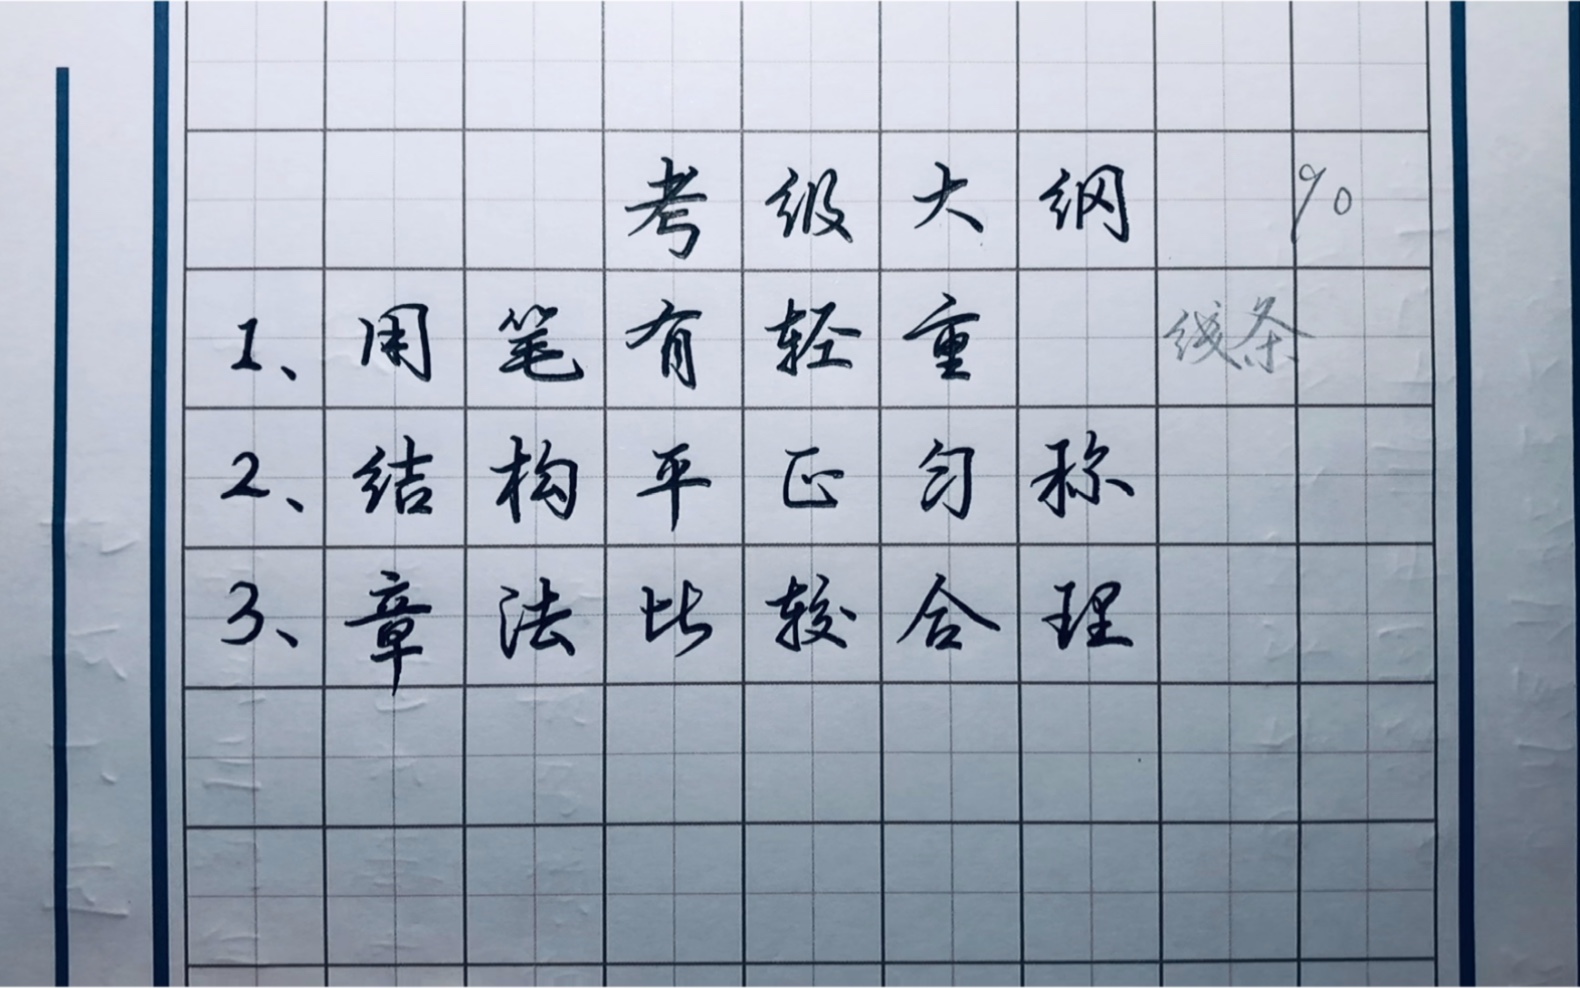 考级大纲 90
1、用笔有轻重 线条
2、结构平正匀称
3、章法比较合理